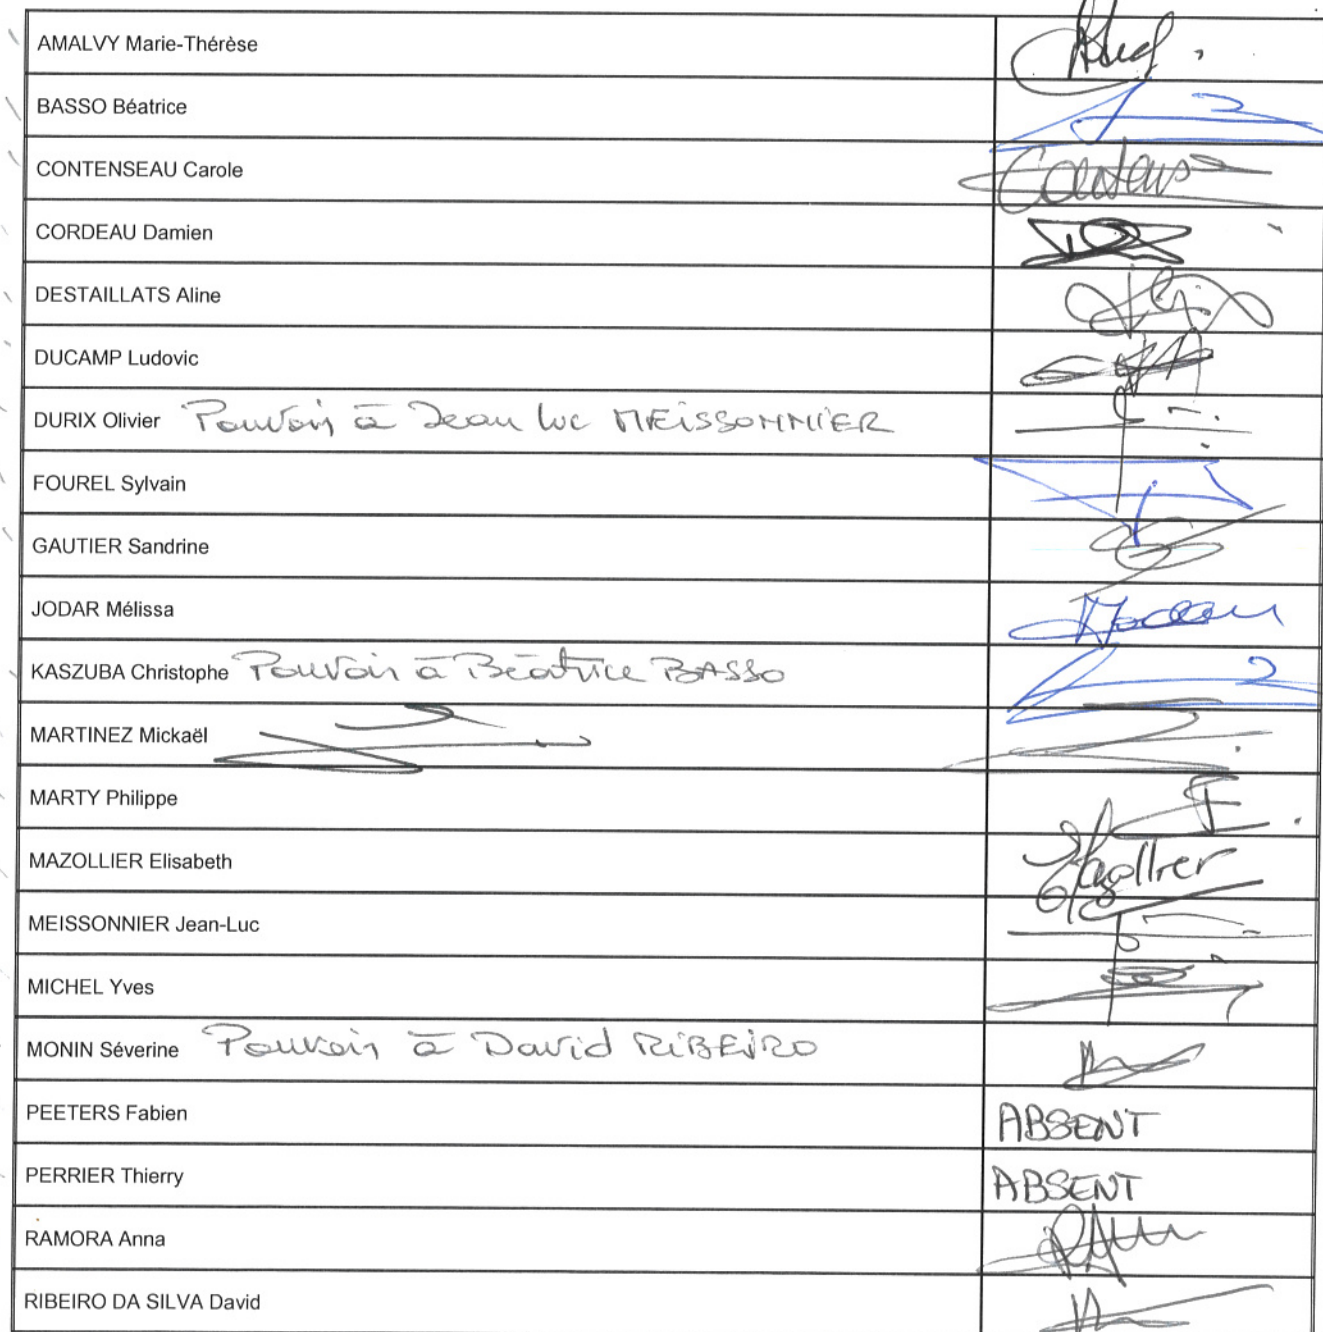 AMALVY Marie-Thérèse
BASSO Béatrice
CONTENSEAU Carole
CORDEAU Damien
DESTAILLATS Aline
DUCAMP Ludovic
DURIX Olivier Pouvoir à Jean Luc MEISSONNIER
FOUREL Sylvain
GAUTIER Sandrine
JODAR Mélissa
KASZUBA Christophe Pouvoir à Béatrice BASSO
MARTINEZ Mickaël
MARTY Philippe
MAZOLLIER Elisabeth
MEISSONNIER Jean-Luc
MICHEL Yves
MONIN Séverine Pouvoir à David RIBEIRO
PEETERS Fabien ABSENT
PERRIER Thierry ABSENT
RAMORA Anna
RIBEIRO DA SILVA David